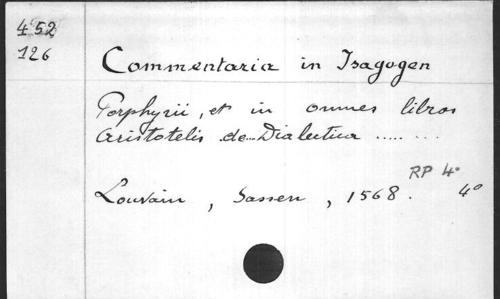 452
126
Commentaria in Isagogen
Porphyrii, et in omnes libros
Aristotelis de Dialectica ..... . ..
RP 4°
Louvain, Sassen, 1568. 4°